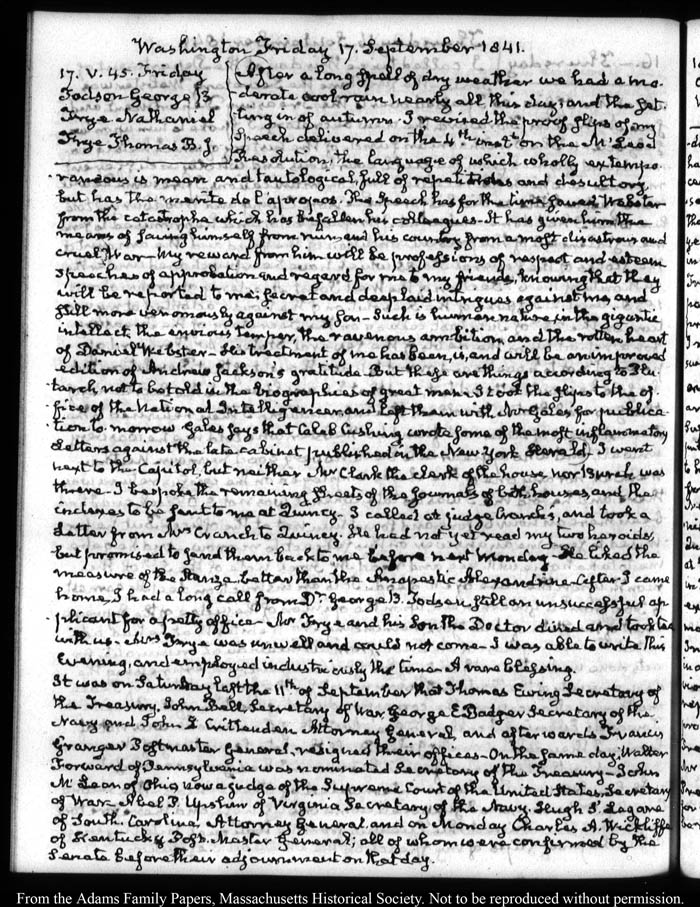 Washington Friday 17. September 1841.
17. V. 45. Friday
Todson George B
Frye Nathaniel
Frye Thomas B. J.
After a long spell of dry weather we had a mo-
derate cool rain nearly all this day; and the set-
ting in of autumn. I revised the proof slips of my
Speech delivered on the 4th inst on the McLeod
Resolution, the language of which wholly extempo-
raneous is mean and tautological, full of repetitions and desultory,
but has the merite de l'apropos. The Speech has for the time saved Webster
from the catastrophe which has befallen his colleagues. It has given him the
means of saving himself from ruin, and his country from a most disastrous and
cruel War. My reward from him will be professions of respect and esteem
speeches of approbation and regard for me to my friends, knowing that they
will be reported to me; secret and deep laid intrigues against me, and
still more venomously against my Son. Such is human nature, in the gigantic
intellect, the envious temper, the ravenous ambition and the rotten heart
of Daniel Webster. His treatment of me has been, is, and will be an improved
edition of Andrew Jackson's gratitude. But these are things according to Plu-
tarch not to be told in the biographies of great men. I took the slips to the of-
fice of the National Intelligencer, and left them with Mr Gales for publica-
tion to morrow. Gales says that Caleb Cushing wrote some of the most inflammatory
Letters against the late cabinet published in the New York Herald. I went
next to the Capitol, but neither Mr Clark the clerk of the house nor Burch was
there. I bespoke the remaining sheets of the Journals of both houses, and the
indexes to be sent to me at Quincy. I called at judge Cranch's, and took a
Letter from Mrs Cranch to Quincy. He had not yet read my two heroids,
but promised to send them back to me before next Monday. He liked the
measure of the stanza better than the Anapestic Alexandrine. After I came
home, I had a long call from Dr George B. Todson, still an unsuccessful ap-
plicant for a petty office. Mr Frye and his Son the Doctor dined and took tea
with us. Mrs Frye was unwell and could not come. I was able to write this
Evening, and employed industriously the time. A rare blessing.
It was on Saturday last the 11th of September that Thomas Ewing Secretary of
the Treasury, John Bell, Secretary of War George E Badger Secretary of the
Navy and John J Crittenden Attorney General, and afterwards Francis
Granger Postmaster General, resigned their offices. On the same day, Walter
Forward of Pennsylvania was nominated Secretary of the Treasury—John
McLean of Ohio, now a judge of the Supreme Court of the United States, Secretary
of War. Abel P. Upshur of Virginia Secretary of the Navy. Hugh S. Legaré
of South Carolina, Attorney General, and on Monday Charles A. Wickliffe
of Kentucky Post-Master General; all of whom were confirmed by the
Senate before their adjournment on that day.
From the Adams Family Papers, Massachusetts Historical Society. Not to be reproduced without permission.